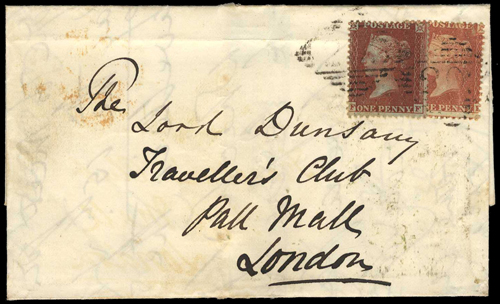 POSTAGE
ONE PENNY
E PENNY
The
Lord Dunsany
Travellers Club
Pall Mall
London